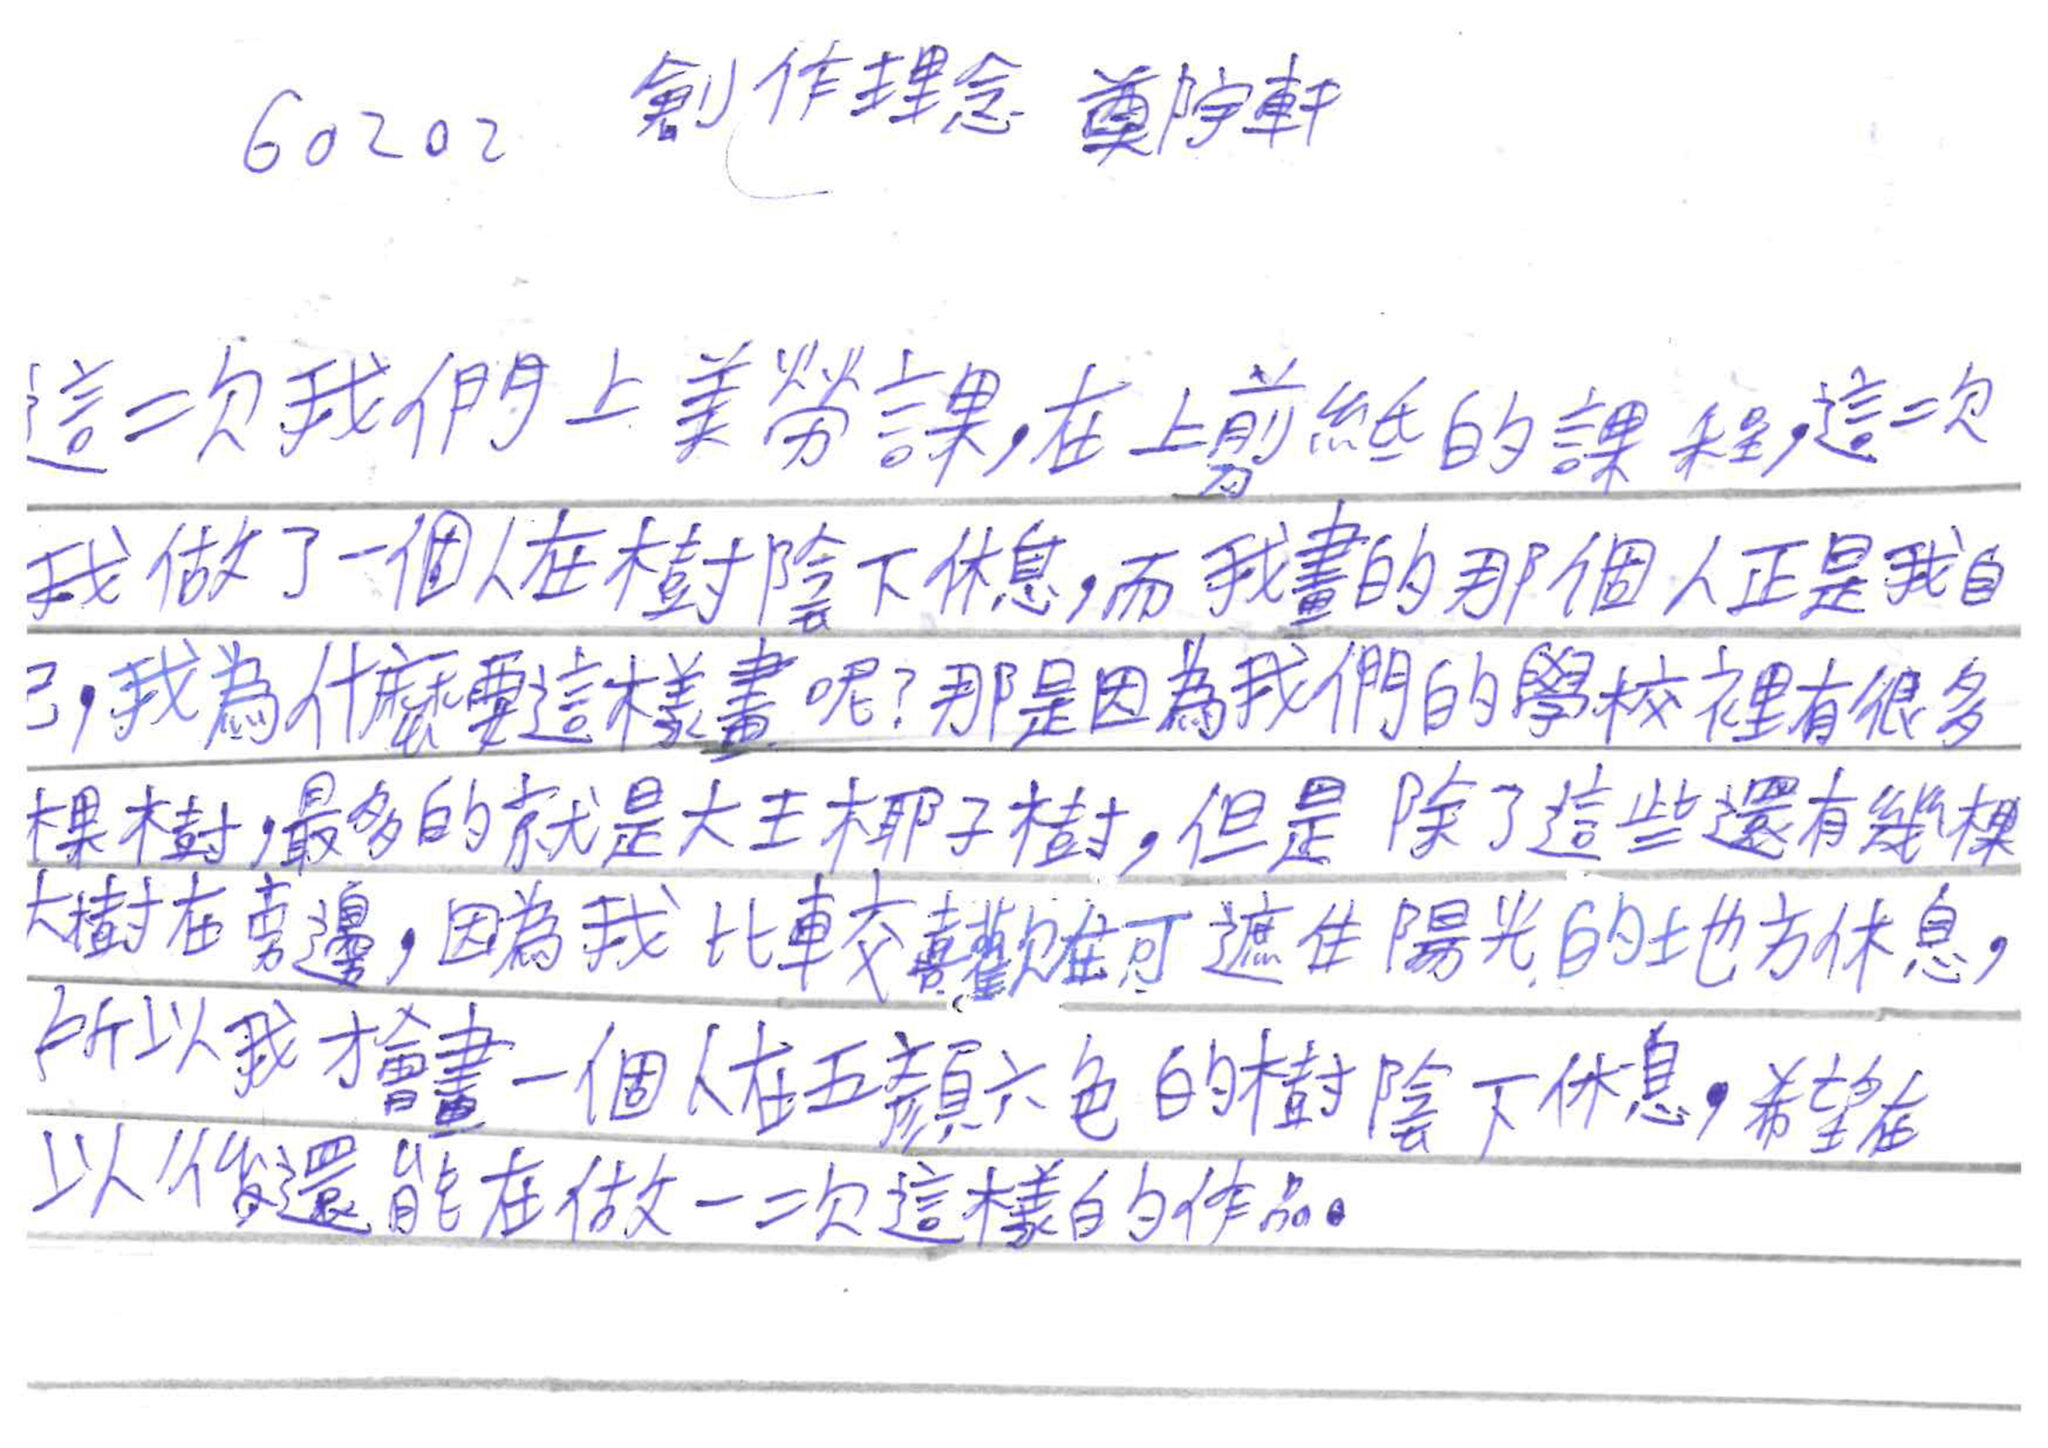 60202 創作理念 鄭宇軒
這一次我們上美勞課,在上剪紙的課程,這一次
我做了一個人在樹陰下休息,而我畫的那個人正是我自
己,我為什麼要這樣畫呢?那是因為我們的學校裡有很多
棵樹,最多的就是大王椰子樹,但是除了這些還有幾棵
大樹在旁邊,因為我比較喜歡在可遮住陽光的地方休息,
所以我才會畫一個人在五顏六色的樹陰下休息,希望在
以後還能在做一次這樣的作品。